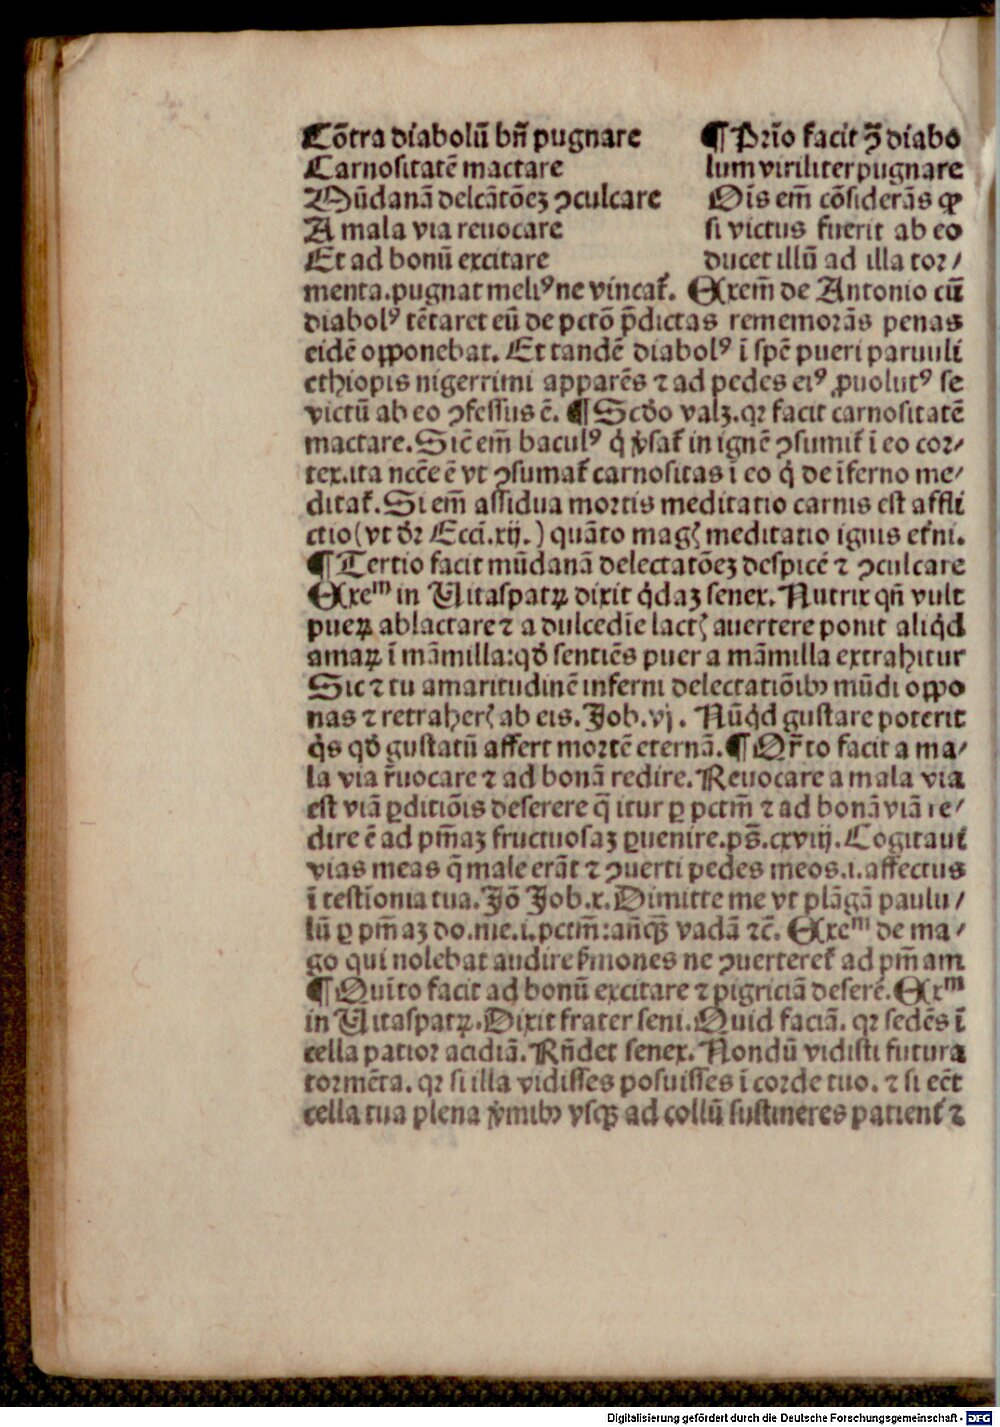 Cõtra diabolũ bñ pugnare
Carnositatẽ mactare
Mũdanã delcãtõeʒ ꝯculcare
A mala via reuocare
Et ad bonũ excitare
¶ Prĩo facit ꝯ̃ diabo
lum viriliter pugnare
Oĩs em̃ cõsiderãs ꝙ
si victus fuerit ab eo
ducet illũ ad illa tor⸗
menta.pugnat meliꝰ ne vincat᷑. Exem̃ de Antonio cũ
diabolꝰ tẽtaret eũ de pctõ p̃dictas rememorãs penas
eidẽ oꝑponebat. Et tandẽ diabolꝰ ĩ spẽ pueri paruuli
ethiopis nigerrimi apparẽs ⁊ ad pedes eiꝰ ꝓuolutꝰ se
victũ ab eo ꝯfessus ẽ. ¶ Scďo valʒ.qꝛ facit carnositatẽ
mactare. Sic̃ em̃ baculꝰ q̇ v̾sat᷑ in ignẽ ꝯsumit᷑ ĩ eo cor⸗
tex.ita ncc̃e ẽ vt ꝯsumat᷑ carnositas ĩ eo q̇ de ĩferno me⸗
ditat᷑. Si em̃ assidua mortis meditatio carnis est affli
ctio(vt ďꝛ Ecci̾.xij.) quãto magꝭ meditatio ignis et̾ni.
¶ Tertio facit mũdanã delectatõeʒ despicẽ ⁊ ꝯculcare
Exeᵐ in Vitaspatꝝ dixit q̇daʒ senex. Nutrix qñ vult
pueꝝ ablactare ⁊ a dulcedĩe lactꝭ auertere ponit aliq̇d
amaꝝ ĩ mãmilla:qď sentiẽs puer a mãmilla extrahitur
Sic ⁊ tu amaritudinẽ inferni delectatiõibꝫ mũdi oꝑpo
nas ⁊ retraherꝭ ab eis. Job.vj. Nũq̇d gustare poterit
q̇s qď gustatũ affert mortẽ eternã. ¶ Qr̃to facit a ma⸗
la via r̃uocare ⁊ ad bonã redire. Reuocare a mala via
est viã ꝑditiõis deserere q̃ itur ꝑ pctm̃ ⁊ ad bonã viã re⸗
dire ẽ ad pm̃aʒ fructuosaʒ ꝑuenire.ps̃.cxviij. Cogitaui
vias meas q̃ male erãt ⁊ ꝯuerti pedes meos.i.affectus
ĩ testĩonia tua. Jõ Job.x. Dimitte me vt plãgã paulu⸗
lũ ꝑ pm̃aʒ do.me.i.pctm̃:añqꝫ̃ vadã ⁊c̃. Exeᵐ de ma⸗
go qui nolebat audire s̾mones ne ꝯuerteret᷑ ad pm̃am
¶ Quĩto facit ad bonũ excitare ⁊ pigriciã deserẽ. Exᵐ
in Vitaspatꝝ. Dixit frater seni. Quid faciã. qꝛ sedẽs ĩ
cella patior acidiã. Rñdet senex. Nondũ vidisti futura
tormẽta. qꝛ si illa vidisses posuisses ĩ corde tuo. ⁊ si eẽt
cella tua plena v̾mibꝫ vsqꝫ ad collũ sustineres patient̾ ⁊
Digitalisierung gefördert durch die Deutsche Forschungsgemeinschaft - DFG